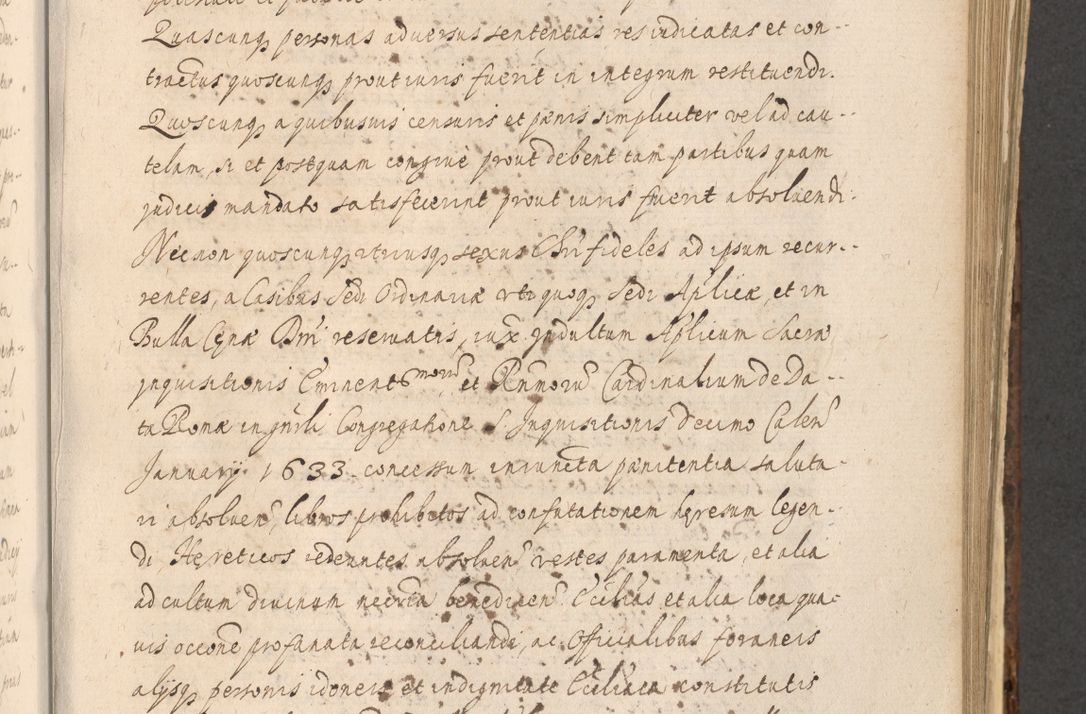 Quascunq personas adversus sententias res iudicatas et con-
tractus quoscunq prout iuris fuerit in integrum restituendi.
Quoscunq a quibusuis censuris et pænis simpliciter vel ad cau-
telam, si et postquam congrue prout debent tam partibus quam
judicis mandato satisfecerint prout iuris fuerit absoluendi.
Necnon quoscunq utriusq sexus Chri fideles ad ipsum recur-
rentes, a Casibus Sedi Ordinariæ uti quoq Sedi Aplicæ, et in
Bulla Cænæ Dni reseruatis, iux Indultum Aplicum Sacræ
Inquisitionis Eminentmorũ et Rnmorũ Cardinalium de Da-
ta Romæ in gnrli Congregatione S. Inquisitionis decimo Calen
Januarij 1633 concessum iniuncta pænitentia saluta-
ri absoluen, libros prohibitos ad confutationem hæresum legen-
di, Hereticos redeuntes absoluen vestes paramenta, et alia
ad cultum divinum necria benedicen Ecclias et alia loca qua-
uis occone profanata reconciliandi, ac Officialibus foraneis
alijsq personis idoneis et in dignitate Ecclica constitutis